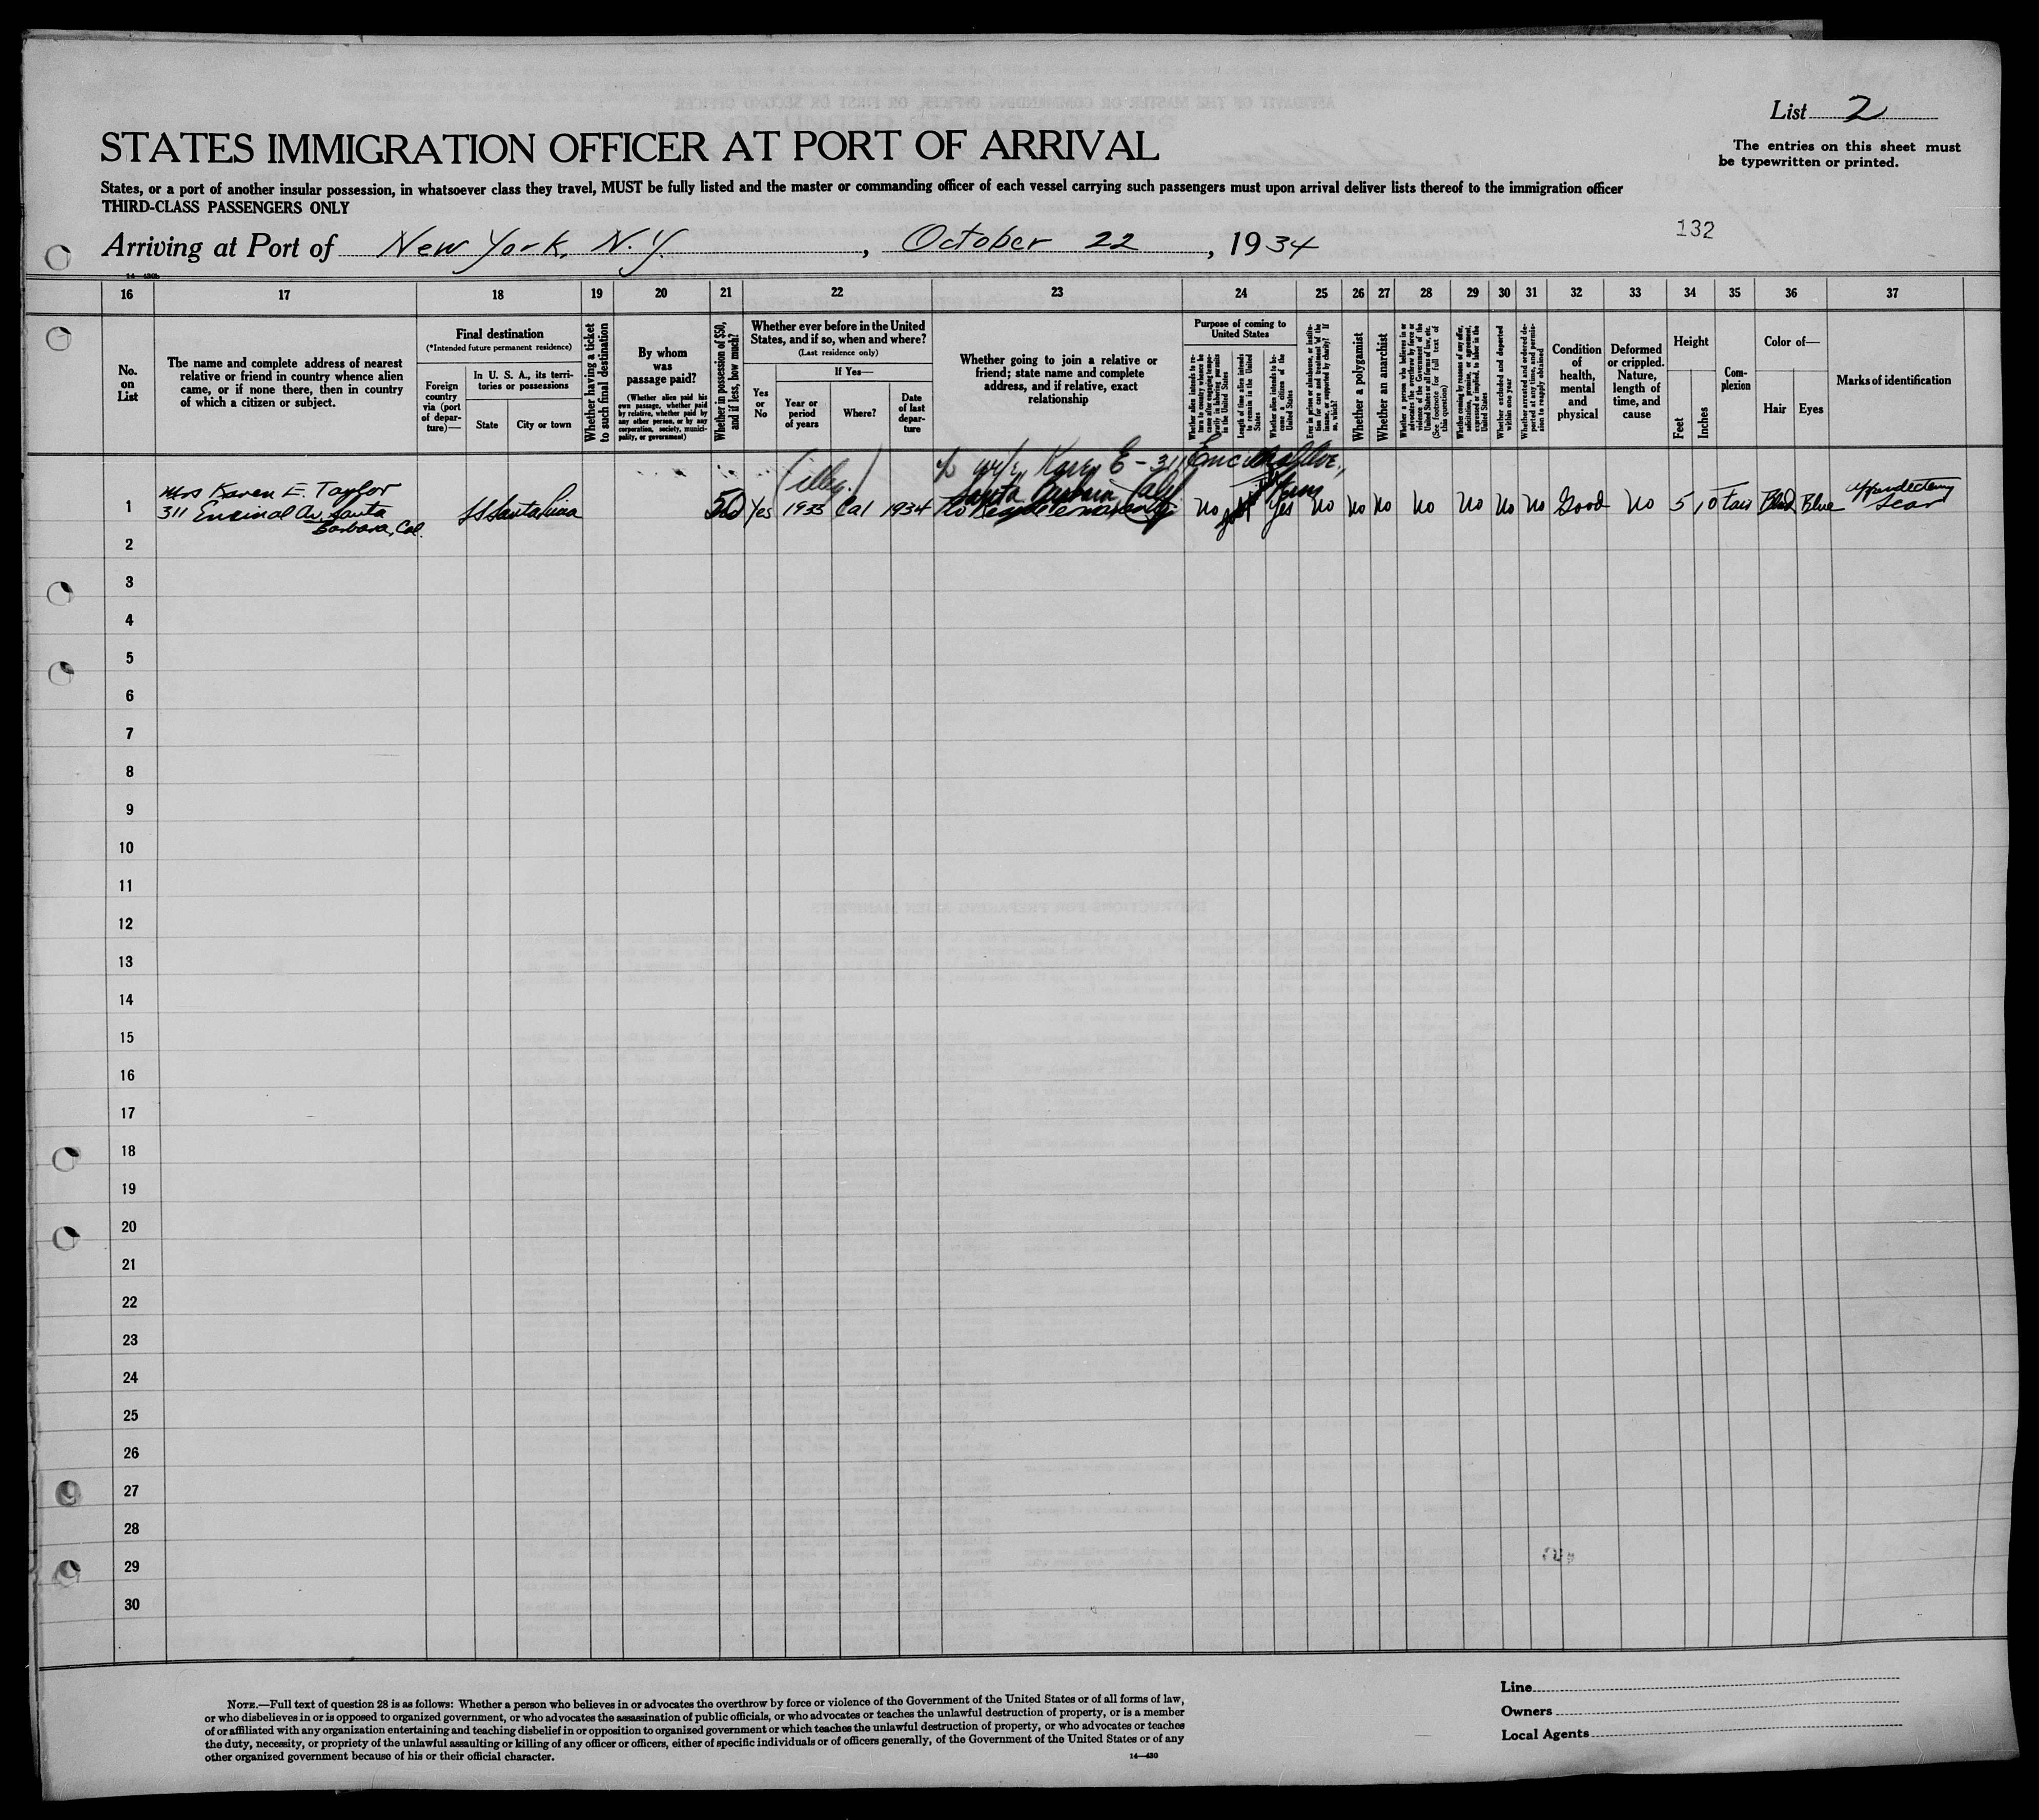 List 2
The entries on this sheet must
be typewritten or printed.
STATES IMMIGRATION OFFICER AT PORT OF ARRIVAL
States, or a port of another insular possession, in whatsoever class they travel, MUST be fully listed and the master or commanding officer of each vessel carrying such passengers must upon arrival deliver lists thereof to the immigration officer
THIRD-CLASS PASSENGERS ONLY
132
Arriving at Port of New York, N.Y. , October 22 , 1934
16 17 18 19 20 21 22 23 24 25 26 27 28 29 30 31 32 33 34 35 36 37
No.
on
List
The name and complete address of nearest
relative or friend in country whence alien
came, or if none there, then in country
of which a citizen or subject.
Final destination
(*Intended future permanent residence)
Foreign
country
via (port
of depar-
ture)—
In U. S. A., its terri-
tories or possessions
State
City or town
Whether having a ticket
to such final destination
By whom
was
passage paid?
(Whether alien paid his
own passage, whether paid
by relative, whether paid by
any other person, or by any
corporation, society, munici-
pality, or government)
Whether in possession of $50,
and if less, how much?
Whether ever before in the United
States, and if so, when and where?
(Last residence only)
Yes
or
No
If Yes—
Year or
period
of years
Where?
Date
of last
depar-
ture
Whether going to join a relative or
friend; state name and complete
address, and if relative, exact
relationship
Purpose of coming to
United States
Whether alien intends to re-
turn to country whence he
came after engaging tempo-
rarily in laboring pursuits
in the United States
Length of time alien intends
to remain in the United
States
Whether alien intends to be-
come a citizen of the
United States
Ever in prison or almshouse, or institu-
tion for care and treatment of the
insane, or supported by charity? If
so, which?
Whether a polygamist
Whether an anarchist
Whether a person who believes in or
advocates the overthrow by force or
violence of the Government of the
United States or all forms of law, etc.
(See footnote for full text of
this question)
Whether coming by reason of any offer,
solicitation, promise, or agreement,
expressed or implied, to labor in the
United States
Whether excluded and deported
within one year
Whether arrested and ordered de-
ported at any time, and permis-
sion to reapply obtained
Condition
of
health,
mental
and
physical
Deformed
or crippled.
Nature,
length of
time, and
cause
Height
Feet
Inches
Com-
plexion
Color of—
Hair
Eyes
Marks of identification
(illeg.) c/o wife, Karen E - 311 Encinal Ave.,
Santa Barbara, Calif
1 Mrs Karen E. Taylor
311 Encinal Av, Santa
Barbara, Cal.
50 Yes 1933 Cal 1934 No Yes No No No No No No No Good No 5 10 Fair Blnd Blue Appendectomy
Scar
2
3
4
5
6
7
8
9
10
11
12
13
14
15
16
17
18
19
20
21
22
23
24
25
26
27
28
29
30
NOTE.—Full text of question 28 is as follows: Whether a person who believes in or advocates the overthrow by force or violence of the Government of the United States or of all forms of law,
or who disbelieves in or is opposed to organized government, or who advocates the assassination of public officials, or who advocates or teaches the unlawful destruction of property, or is a member
of or affiliated with any organization entertaining and teaching disbelief in or opposition to organized government or which teaches the unlawful destruction of property, or who advocates or teaches
the duty, necessity, or propriety of the unlawful assaulting or killing of any officer or officers, either of specific individuals or of officers generally, of the Government of the United States or of any
other organized government because of his or their official character.
14—430
Line
Owners
Local Agents